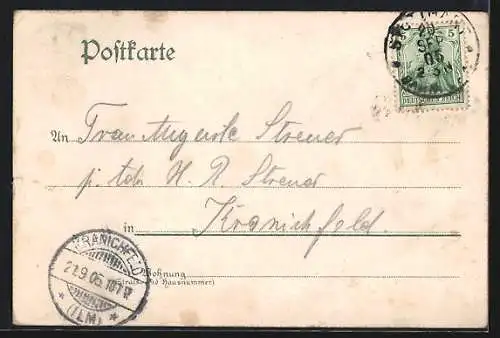 Postkarte
5
DEUTSCHES REICH
An Frau Auguste Streuer
H. R. Streuer
in Kranichfeld.
Wohnung
(Straße und Hausnummer)
KRANICHFELD
21.9.05.
* (ILM) *